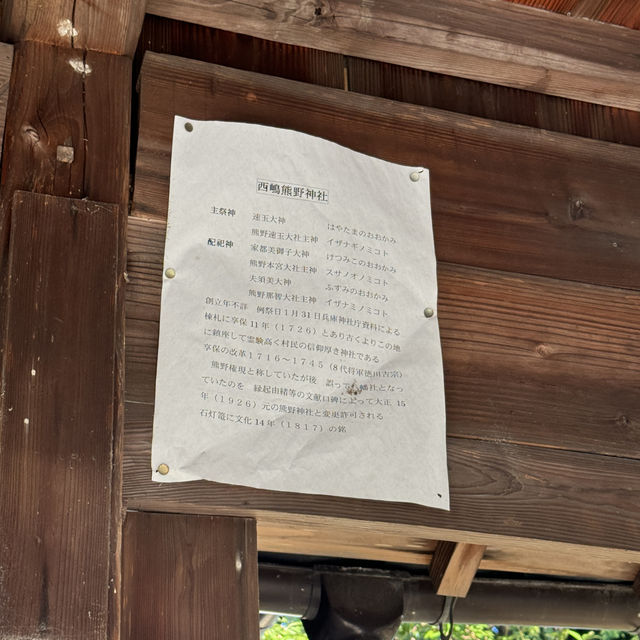 西嶋熊野神社
主祭神 速玉大神 はやたまのおおかみ
熊野速玉大社主神 イザナギノミコト
配祀神 家都美御子大神 けつみこのおおかみ
熊野本宮大社主神 スサノオノミコト
夫須美大神 ふすみのおおかみ
熊野那智大社主神 イザナミノミコト
創立年不詳 例祭日1月31日兵庫神社庁資料による
棟札に享保11年（1726）とあり古くよりこの地
に鎮座して霊験高く村民の信仰厚き神社である
享保の改革1716～1745（8代将軍徳川吉宗）
熊野権現と称していたが後 誤って 幡社となっ
ていたのを 縁起由緒等の文献口碑によって大正 15
年（1926）元の熊野神社と変更許可される
石灯篭に文化14年（1817）の銘